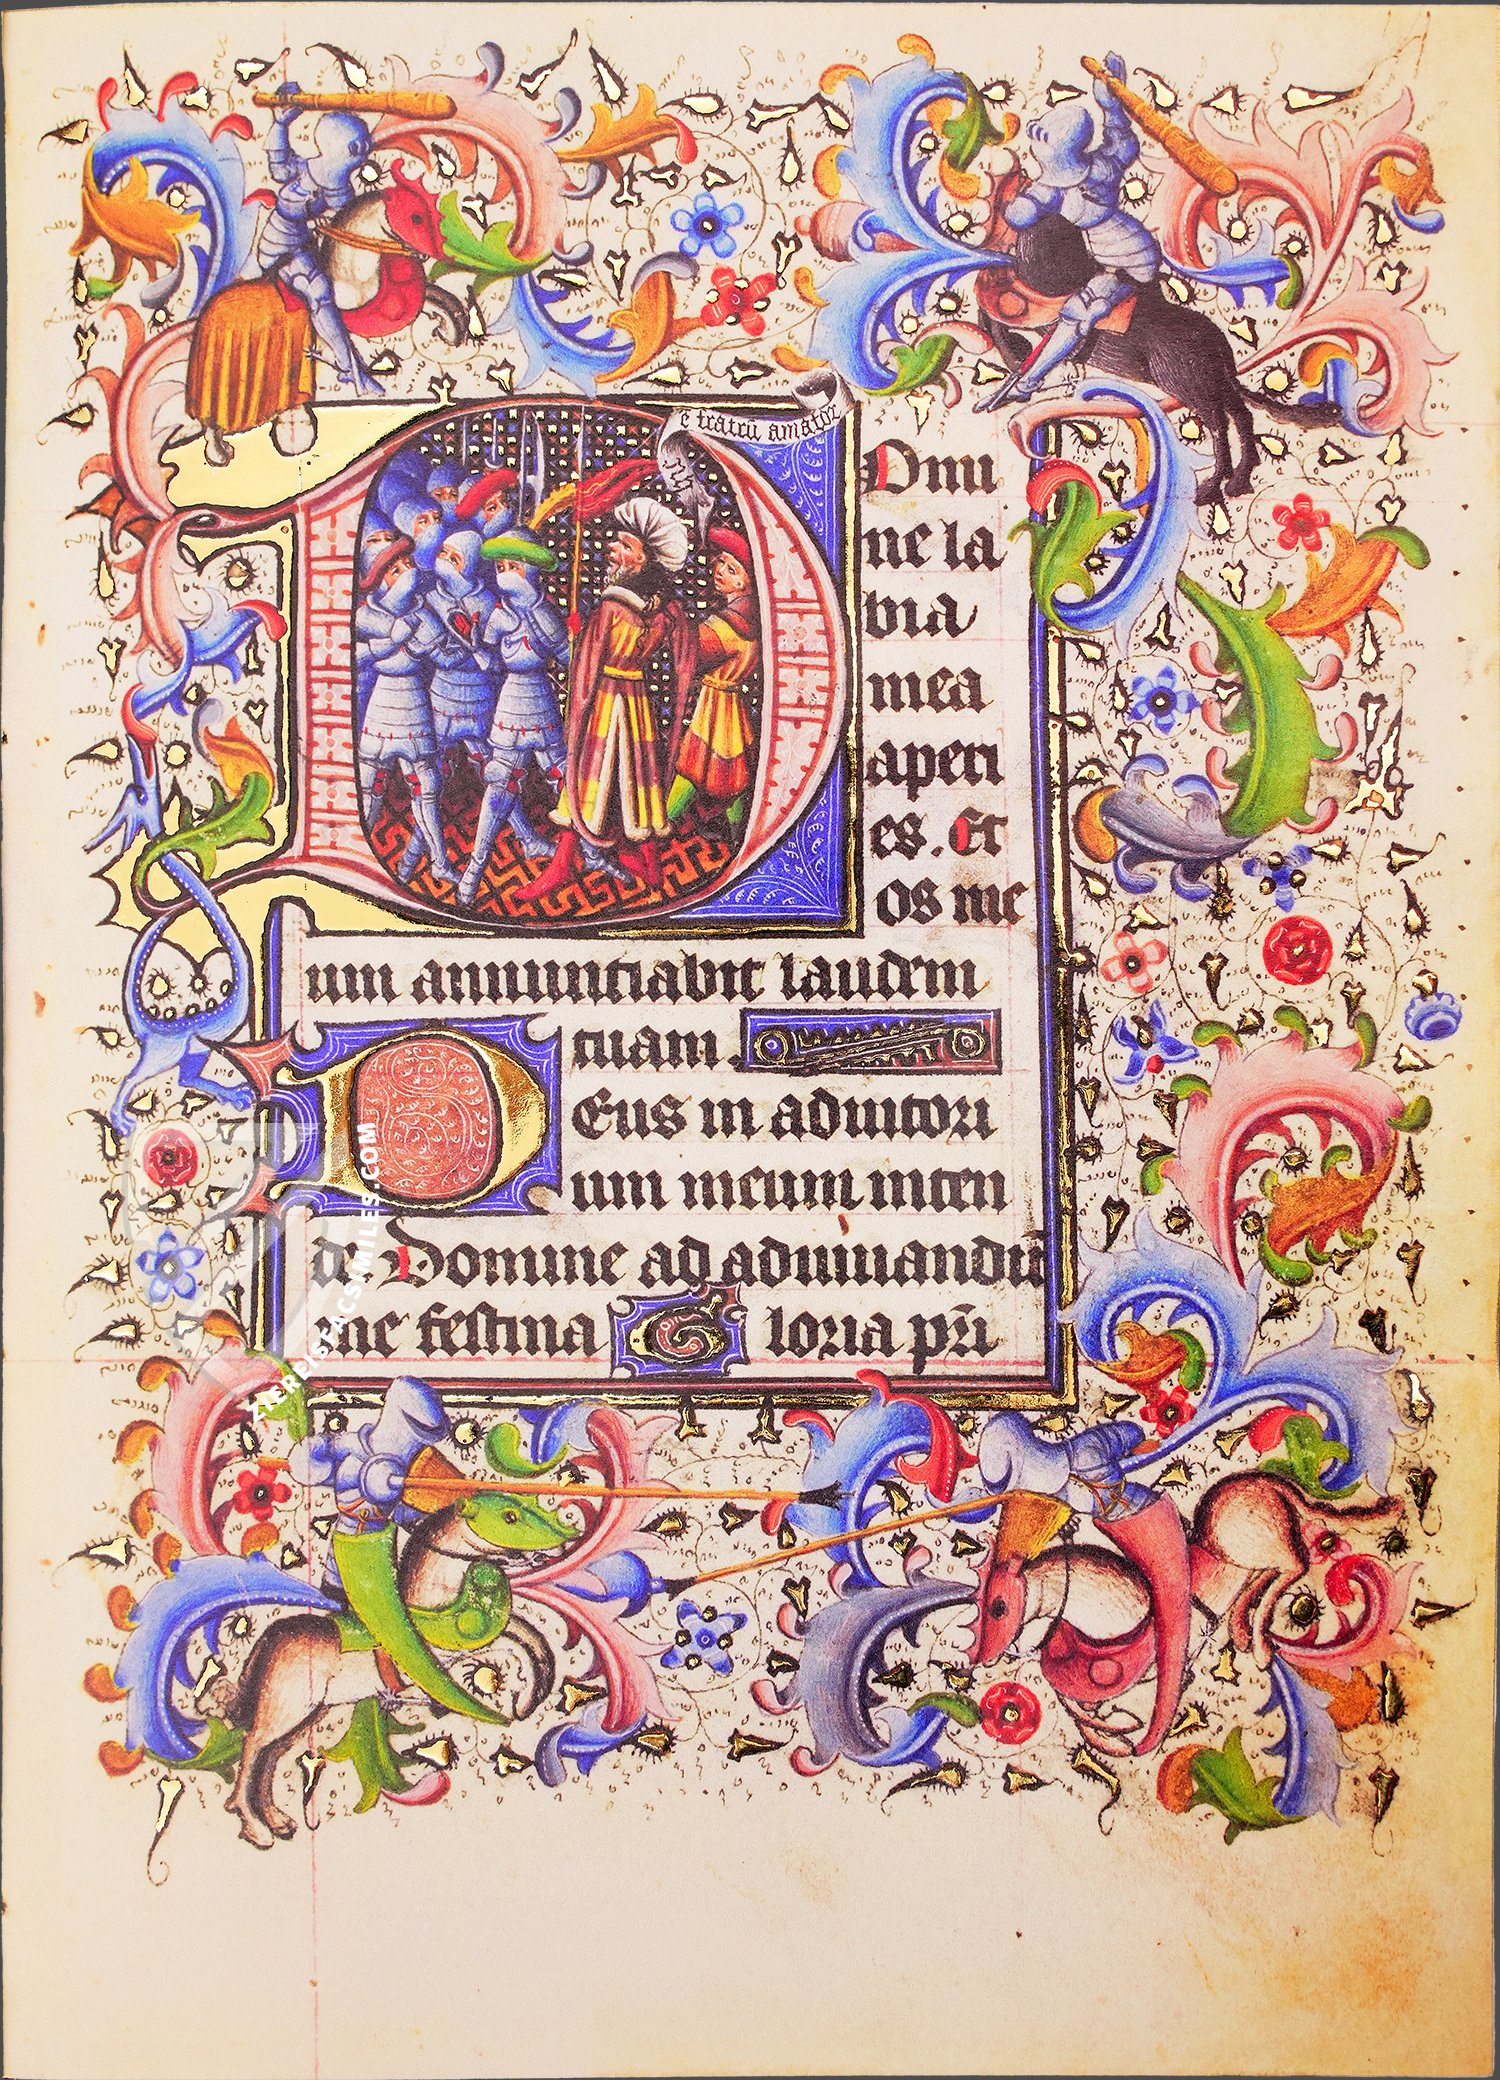 e fratrū amator
Domi
ne la
bia
mea
aperi
es. Et
os me
um annuntiabit laudem
tuam.
Deus in adiutori
um meum inten
de Domine ad adiuuandū
me festina Gloria pr̄i
ZIEREISFACSIMILES.COM